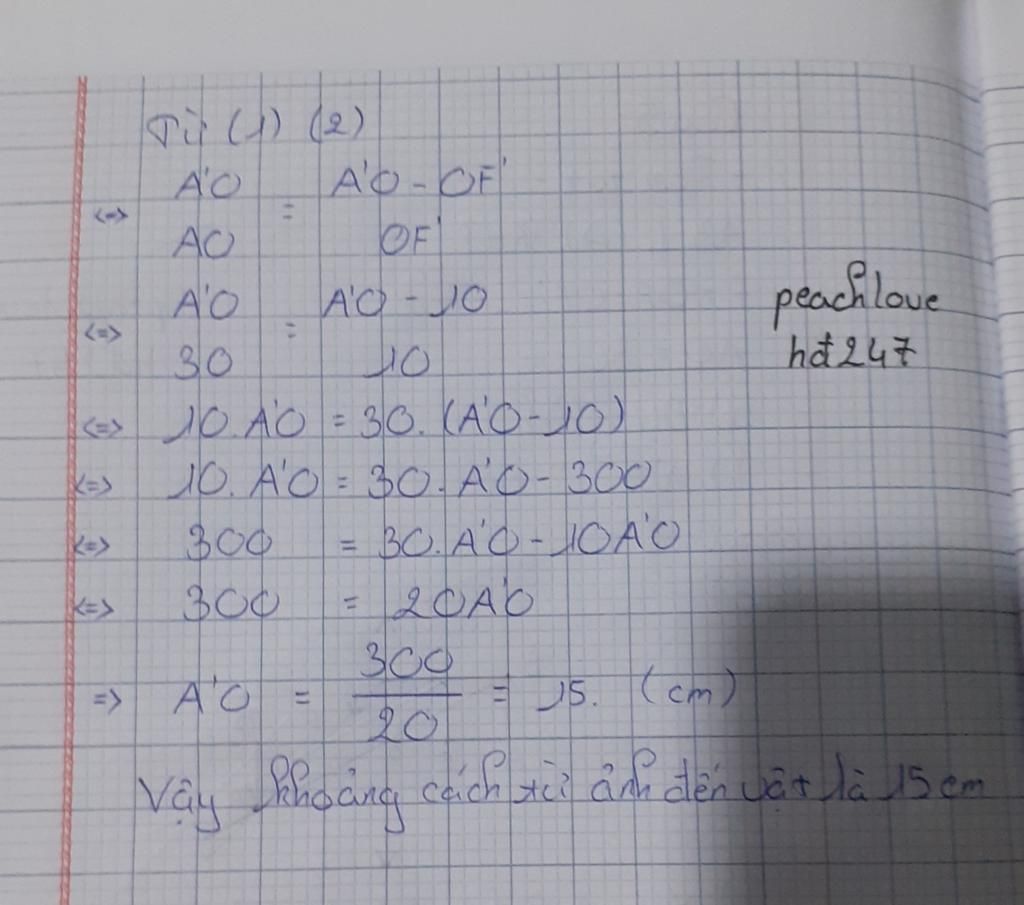 Từ (1) (2)
<=> A'O/AO = A'O - OF'/OF'
<=> A'O/30 = A'O - 10/10
peachlove
hđ247
<=> 10.A'O = 30.(A'O-10)
<=> 10.A'O = 30.A'O - 300
<=> 300 = 30.A'O - 10A'O
<=> 300 = 20A'O
=> A'O = 300/20 = 15. (cm)
Vậy khoảng cách từ ảnh đến vật là 15cm